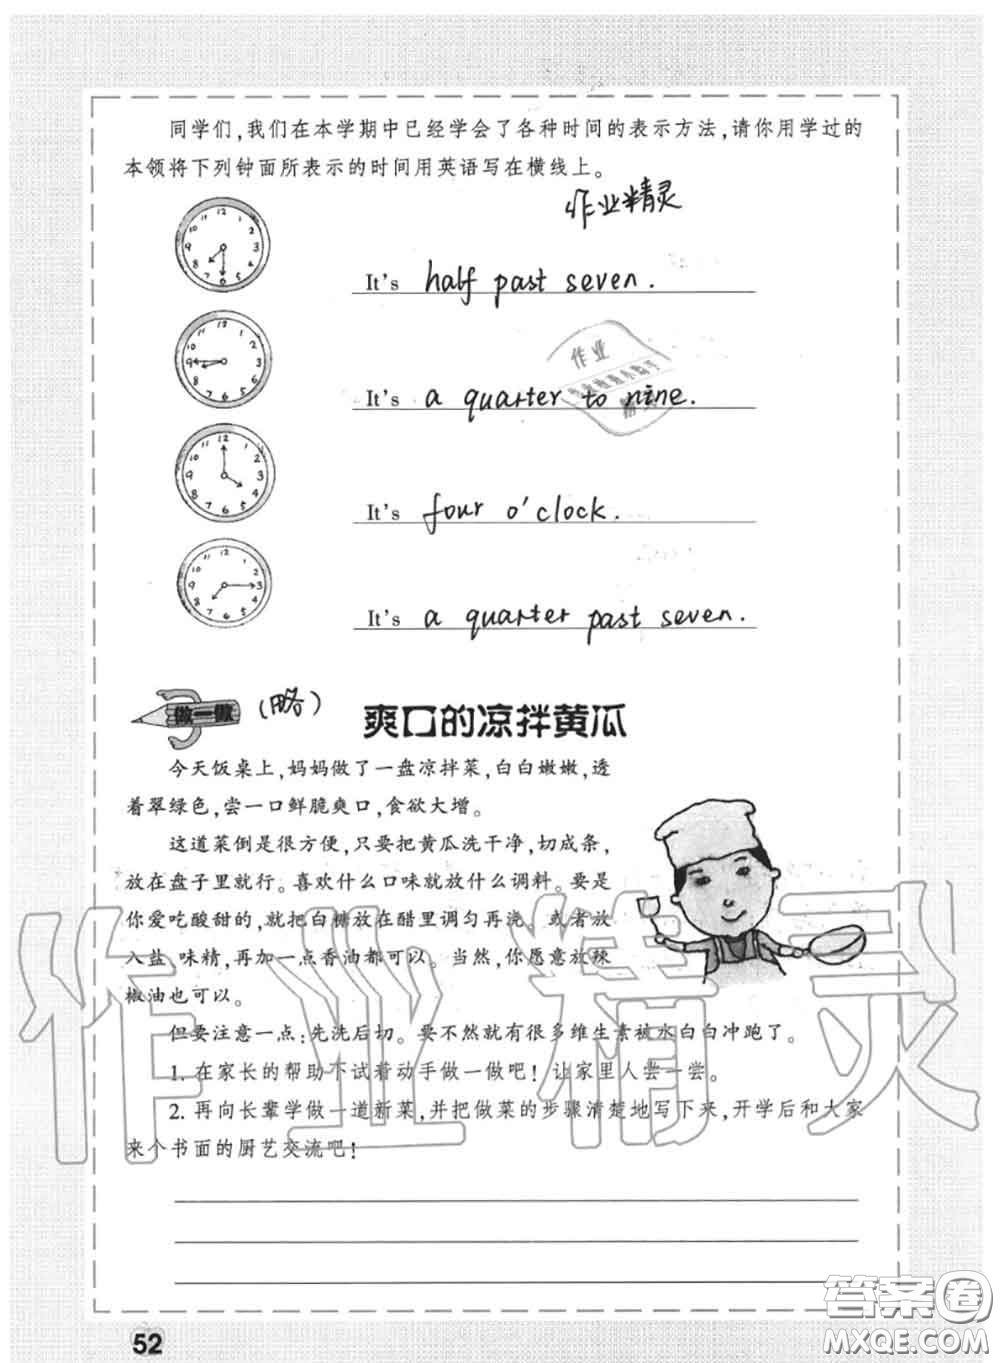 同学们,我们在本学期中已经学会了各种时间的表示方法,请你用学过的
本领将下列钟面所表示的时间用英语写在横线上。
作业精灵
It's half past seven.
It's a quarter to nine.
作业
It's four o'clock.
It's a quarter past seven.
做一做
(略)
爽口的凉拌黄瓜
今天饭桌上,妈妈做了一盘凉拌菜,白白嫩嫩,透
着翠绿色,尝一口鲜脆爽口,食欲大增。
这道菜倒是很方便,只要把黄瓜洗干净,切成条,
放在盘子里就行。喜欢什么口味就放什么调料。要是
你爱吃酸甜的,就把白糖放在醋里调匀再浇。或者放
入盐、味精,再加一点香油都可以。当然,你愿意放辣
椒油也可以。
但要注意一点:先洗后切。要不然就有很多维生素被水白白冲跑了。
1. 在家长的帮助下试着动手做一做吧!让家里人尝一尝。
2. 再向长辈学做一道新菜,并把做菜的步骤清楚地写下来,开学后和大家
来个书面的厨艺交流吧!
作业精灵
52
答案圈
MXQE.COM